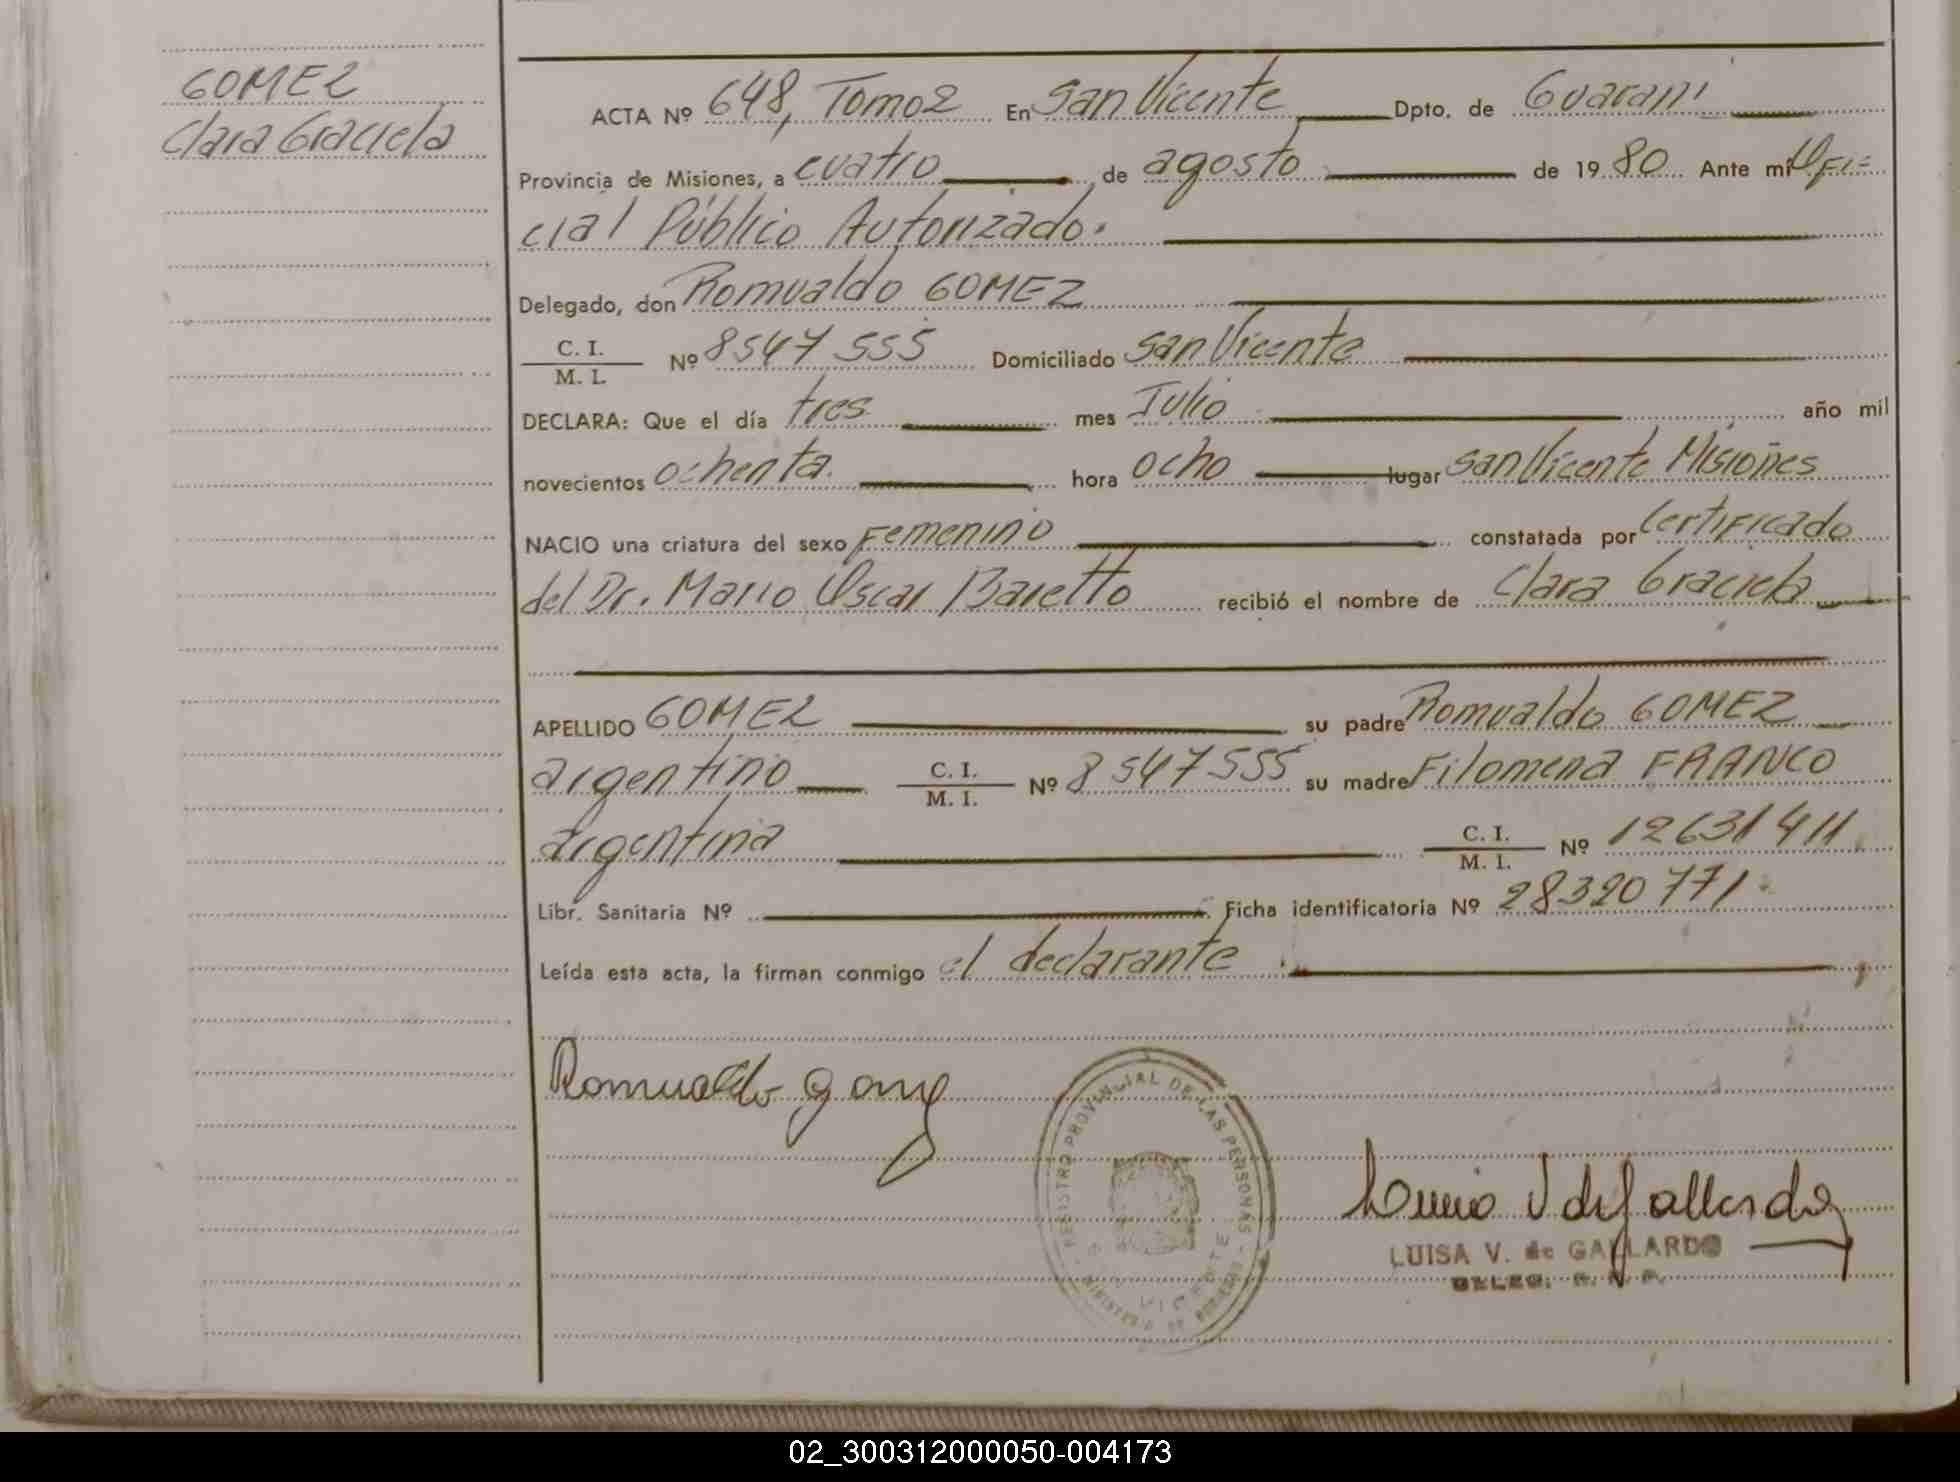 GOMEZ
Clara Graciela
ACTA Nº 648, Tomo 2 En San Vicente Dpto. de Guarani
Provincia de Misiones, a cuatro de agosto de 1980 Ante mi Ofi=
cial Público Autorizado.
Delegado, don Romualdo GOMEZ
C. I.
M. I. Nº 8547555 Domiciliado San Vicente
DECLARA: Que el día tres mes Julio año mil
novecientos ochenta hora ocho lugar San Vicente Misiones
NACIO una criatura del sexo Femenino constatada por Certificado
del Dr. Mario Oscar Baretto recibió el nombre de Clara Graciela
APELLIDO GOMEZ su padre Romualdo GOMEZ
argentino C. I.
M. I. Nº 8547555 su madre Filomena FRANCO
argentina C. I.
M. I. Nº 12631411
Libr. Sanitaria Nº Ficha identificatoria Nº 28320771
Leída esta acta, la firman conmigo el declarante
Romualdo gomez
REGISTRO PROVINCIAL DE LAS PERSONAS
MINISTERIO DE GOBIERNO
VICENTE
Luisa V de Gallardo
LUISA V. de GALLARDO
DELEG. R. P. P.
02_300312000050-004173